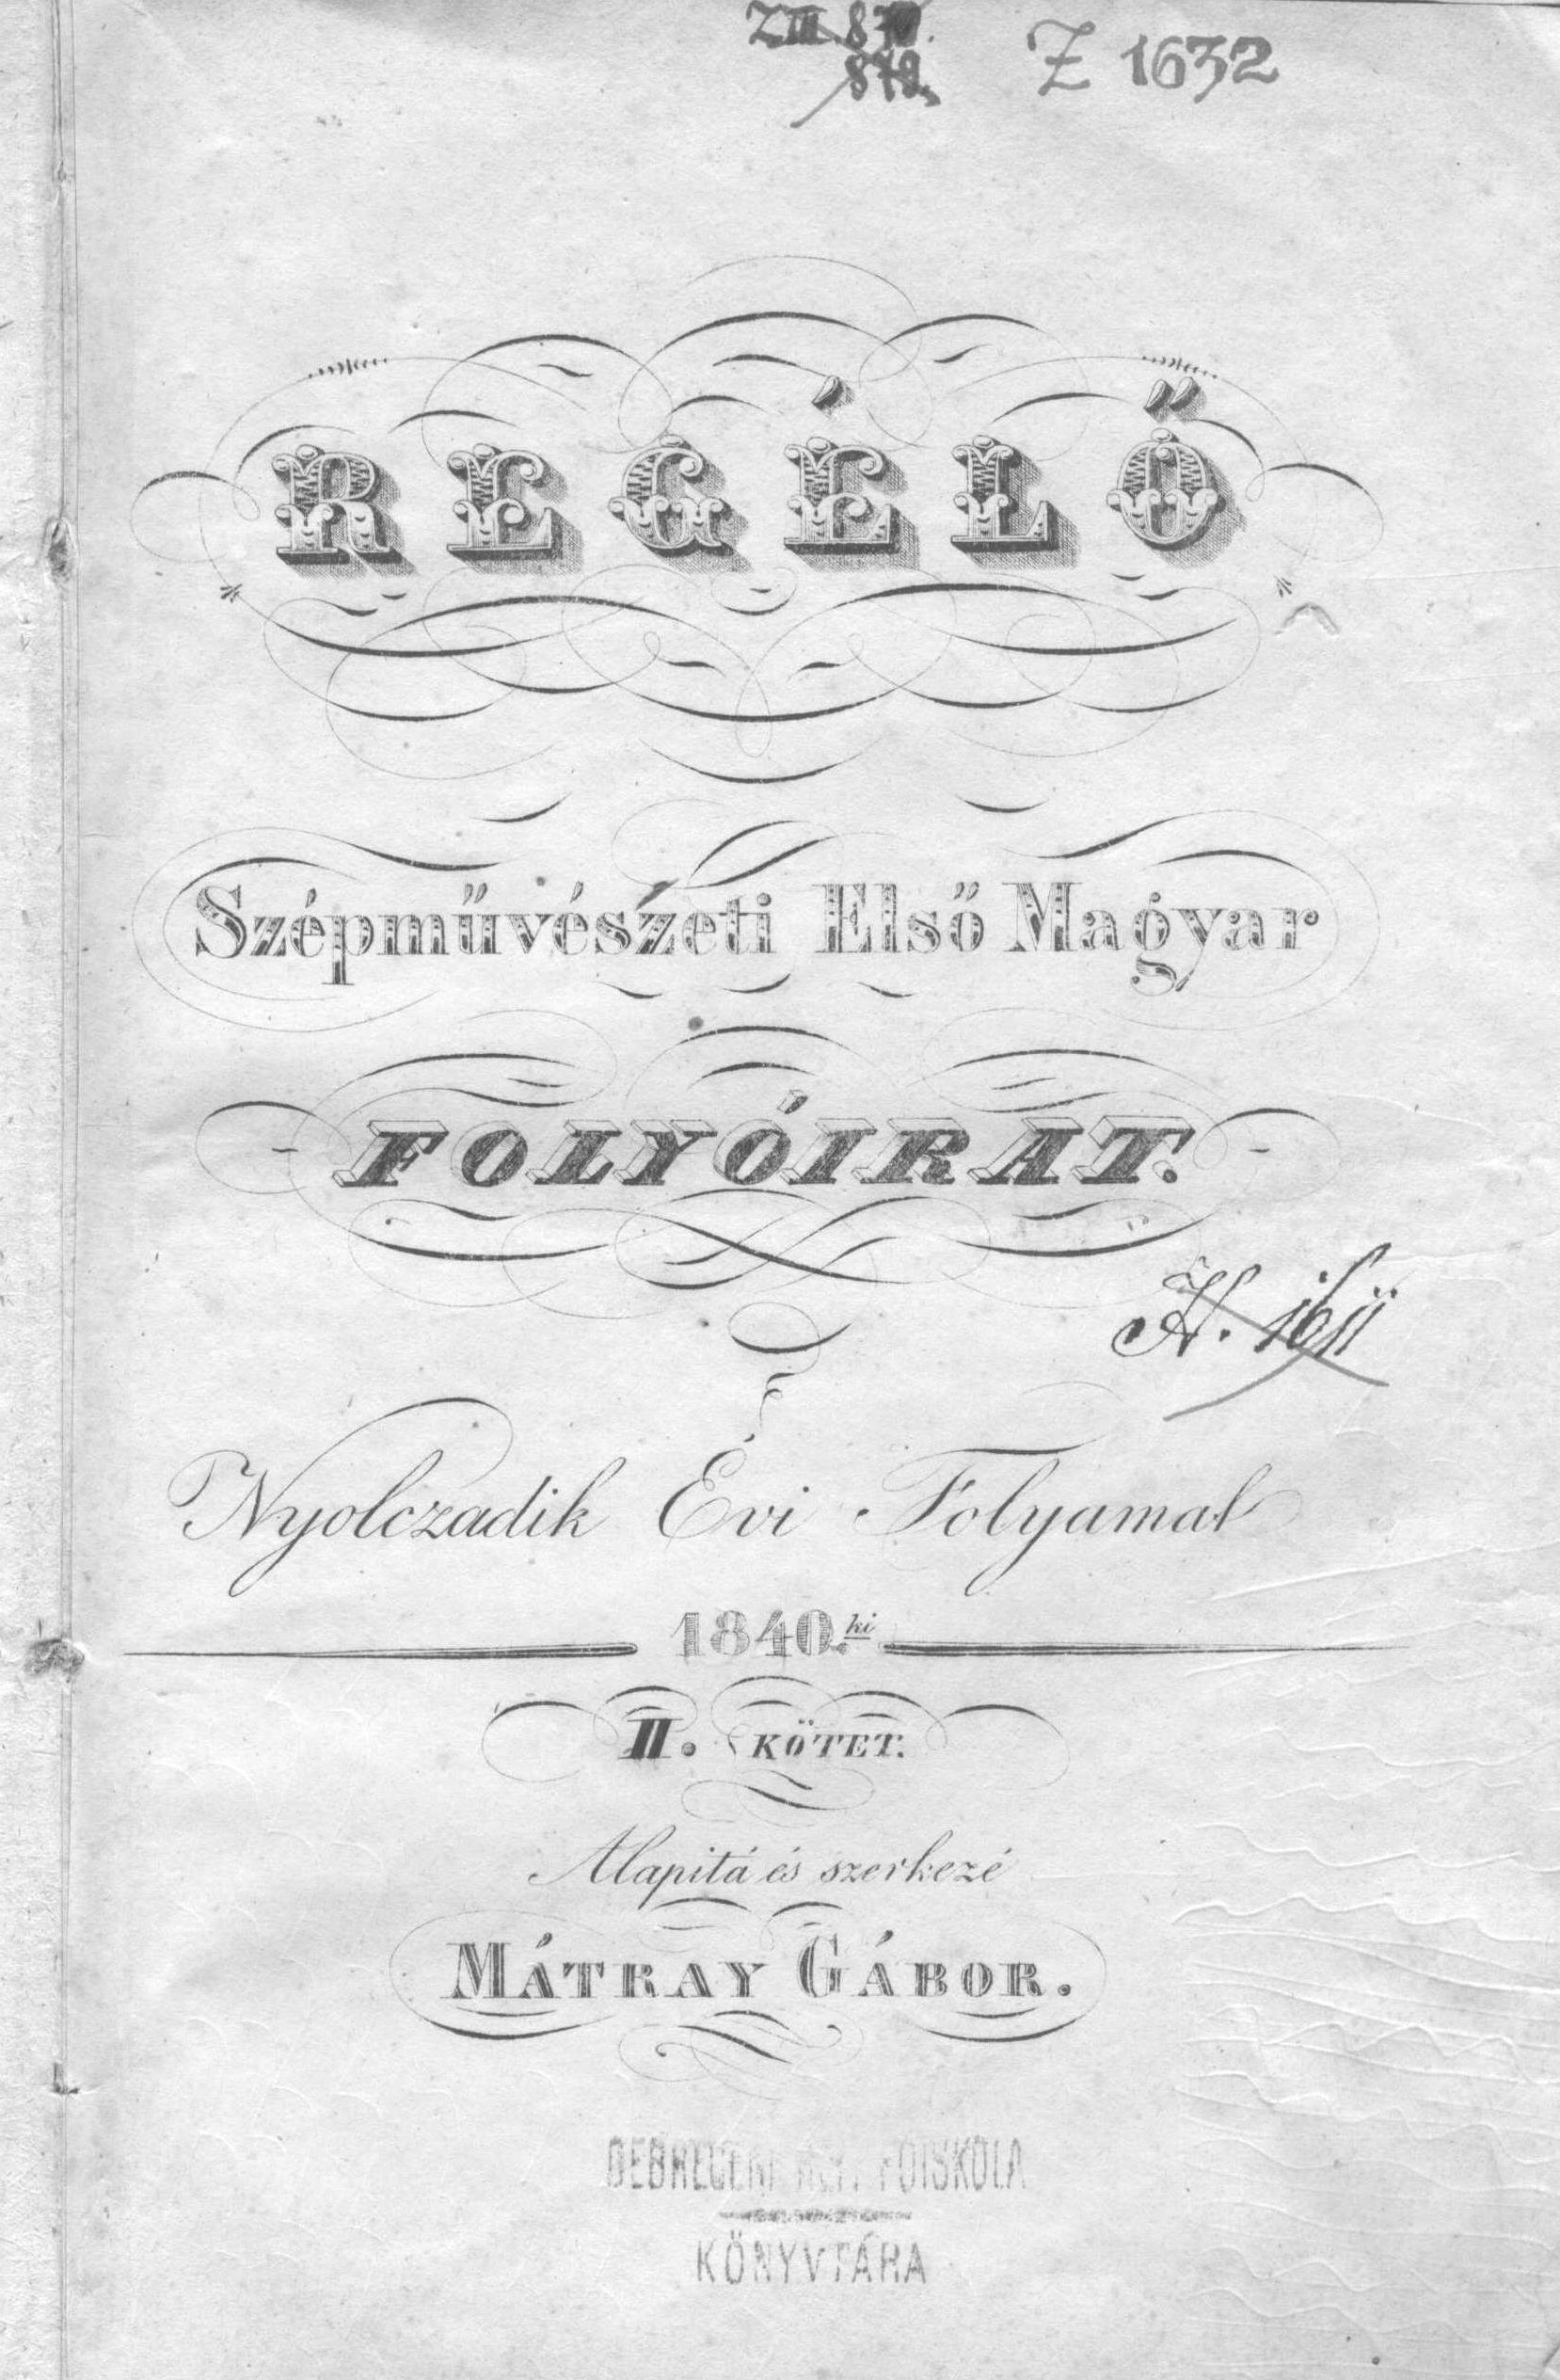 Z 1632
REGÉLŐ
Szépművészeti Első Magyar
FOLYÓIRAT.
Nyolczadik Évi Folyamat
1840.ki
II. KÖTET.
Alapitá és szerkezé
MÁTRAY GÁBOR.
DEBRECENI REF. FŐISKOLA
KÖNYVTÁRA